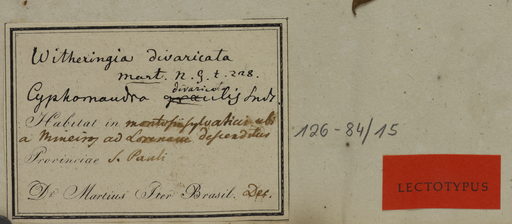 Witheringia divaricata
mart. N. G. t. 228.
divarica
Cyphomandra gracilis Sndt
Habitat in montosis sylvaticis ubi
a Mineiros ad Lorenam descenditur
Provinciae S. Pauli
Dr Martius Iter Brasil. Dec.
126-84/15
LECTOTYPUS